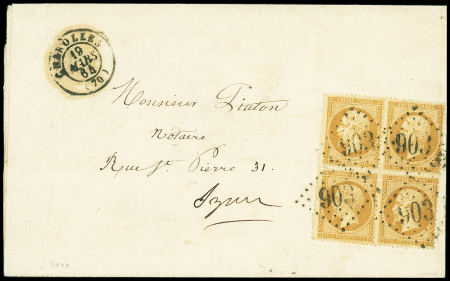 CHAROLLES
19
MARS
64
(70)
Monsieur Piaton
Notaire
Rue St Pierre 31.
Lyon
903
903
903
903